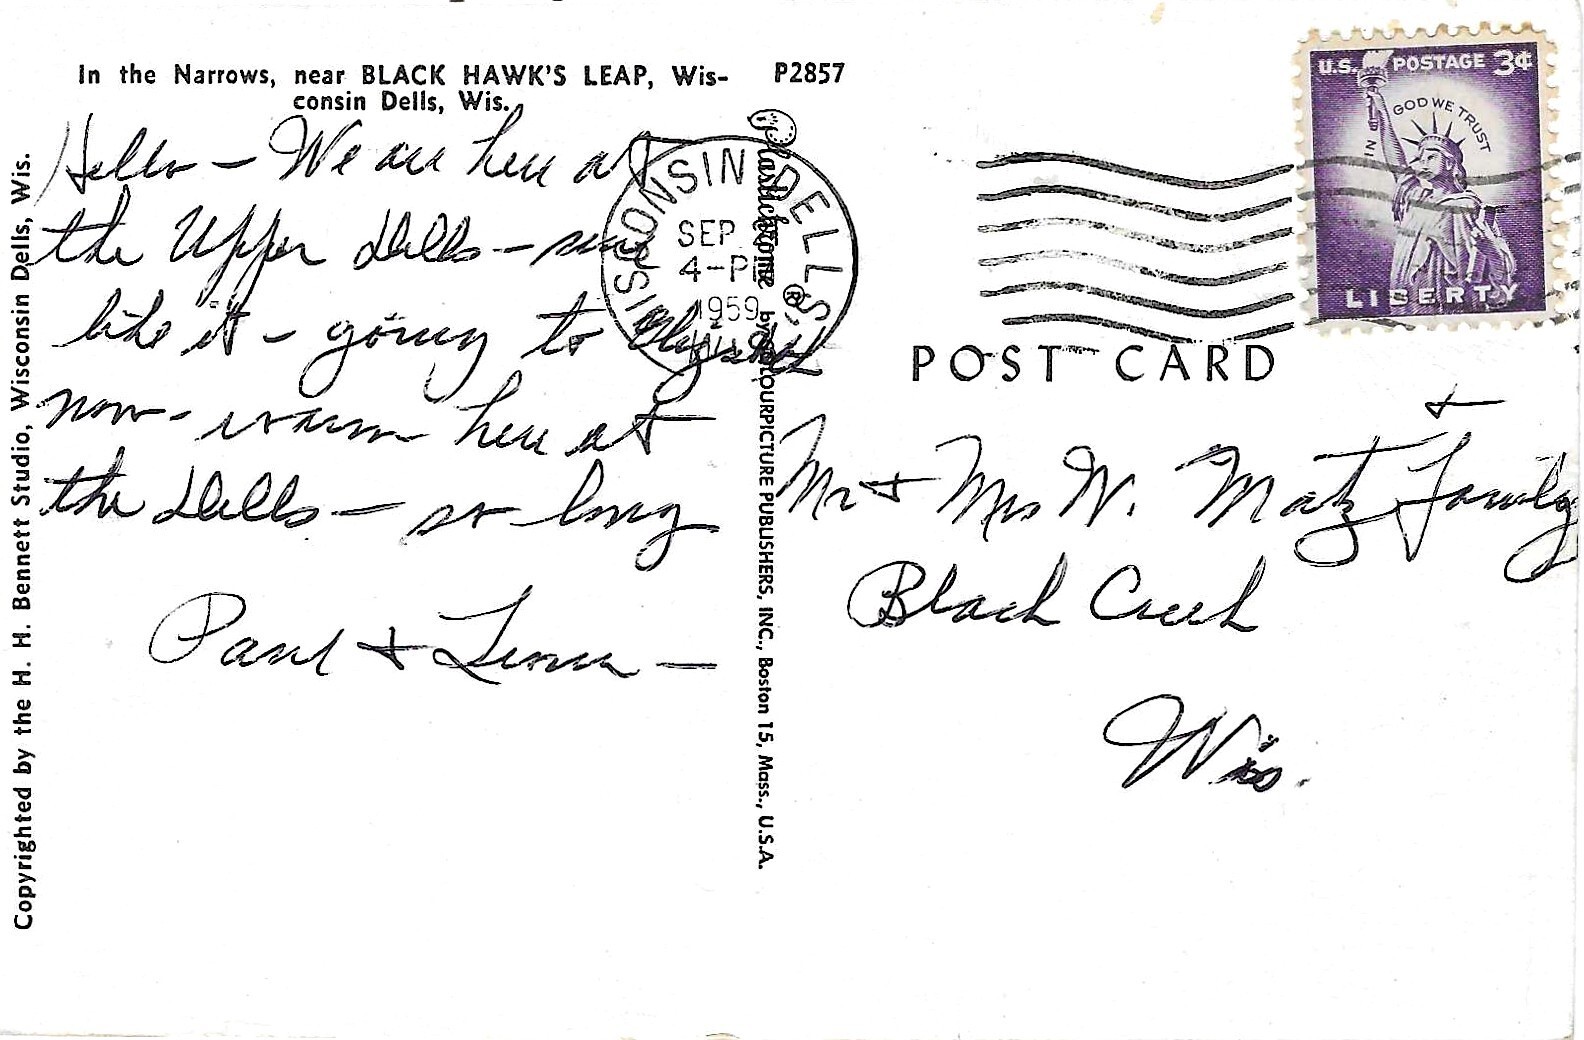 In the Narrows, near BLACK HAWK'S LEAP, Wis-
consin Dells, Wis.
P2857
Hello - We are here at
the Upper Dells - sure
like it - going to
now - warm here at
the Dells - so long
Paul +
Copyrighted by the H. H. Bennett Studio, Wisconsin Dells, Wis.
Plastichrome ® by COLOURPICTURE PUBLISHERS, INC., Boston 15, Mass., U.S.A.
WISCONSIN DELLS,
SEP
4-PM
1959
WIS.
U.S. POSTAGE 3¢
IN GOD WE TRUST
LIBERTY
POST CARD
Mr + Mrs W. Matz + Family
Black Creek
Wis.